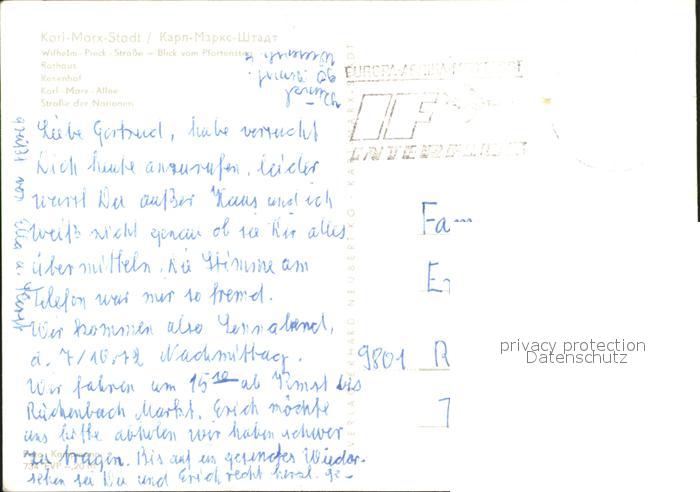 Karl-Marx-Stadt / Карл-Маркс-Штадт
Wilhelm-Pieck-Straße – Blick vom Pfortensteg
Rathaus
Rosenhof
Karl-Marx-Allee
Straße der Nationen
Liebe Gertrud, habe versucht
Dich heute anzurufen, leider
warst Du außer Haus und ich
weiß nicht genau ob sie Dir alles
übermitteln. Die Stimme am
Telefon war mir so fremd.
Wir kommen also Sonnabend,
d. 7/10.72 Nachmittag.
Wir fahren um 15 ab bis
Reichenbach Markt. Erich möchte
uns bitte abholen wir haben schwer
zu tragen. Bis auf ein gesundes Wieder-
sehen sei Du und Erich recht herzl. ge-
grüßt von u.
INTERFLUG
IF
Fa
E
9801 R
privacy protection
Datenschutz